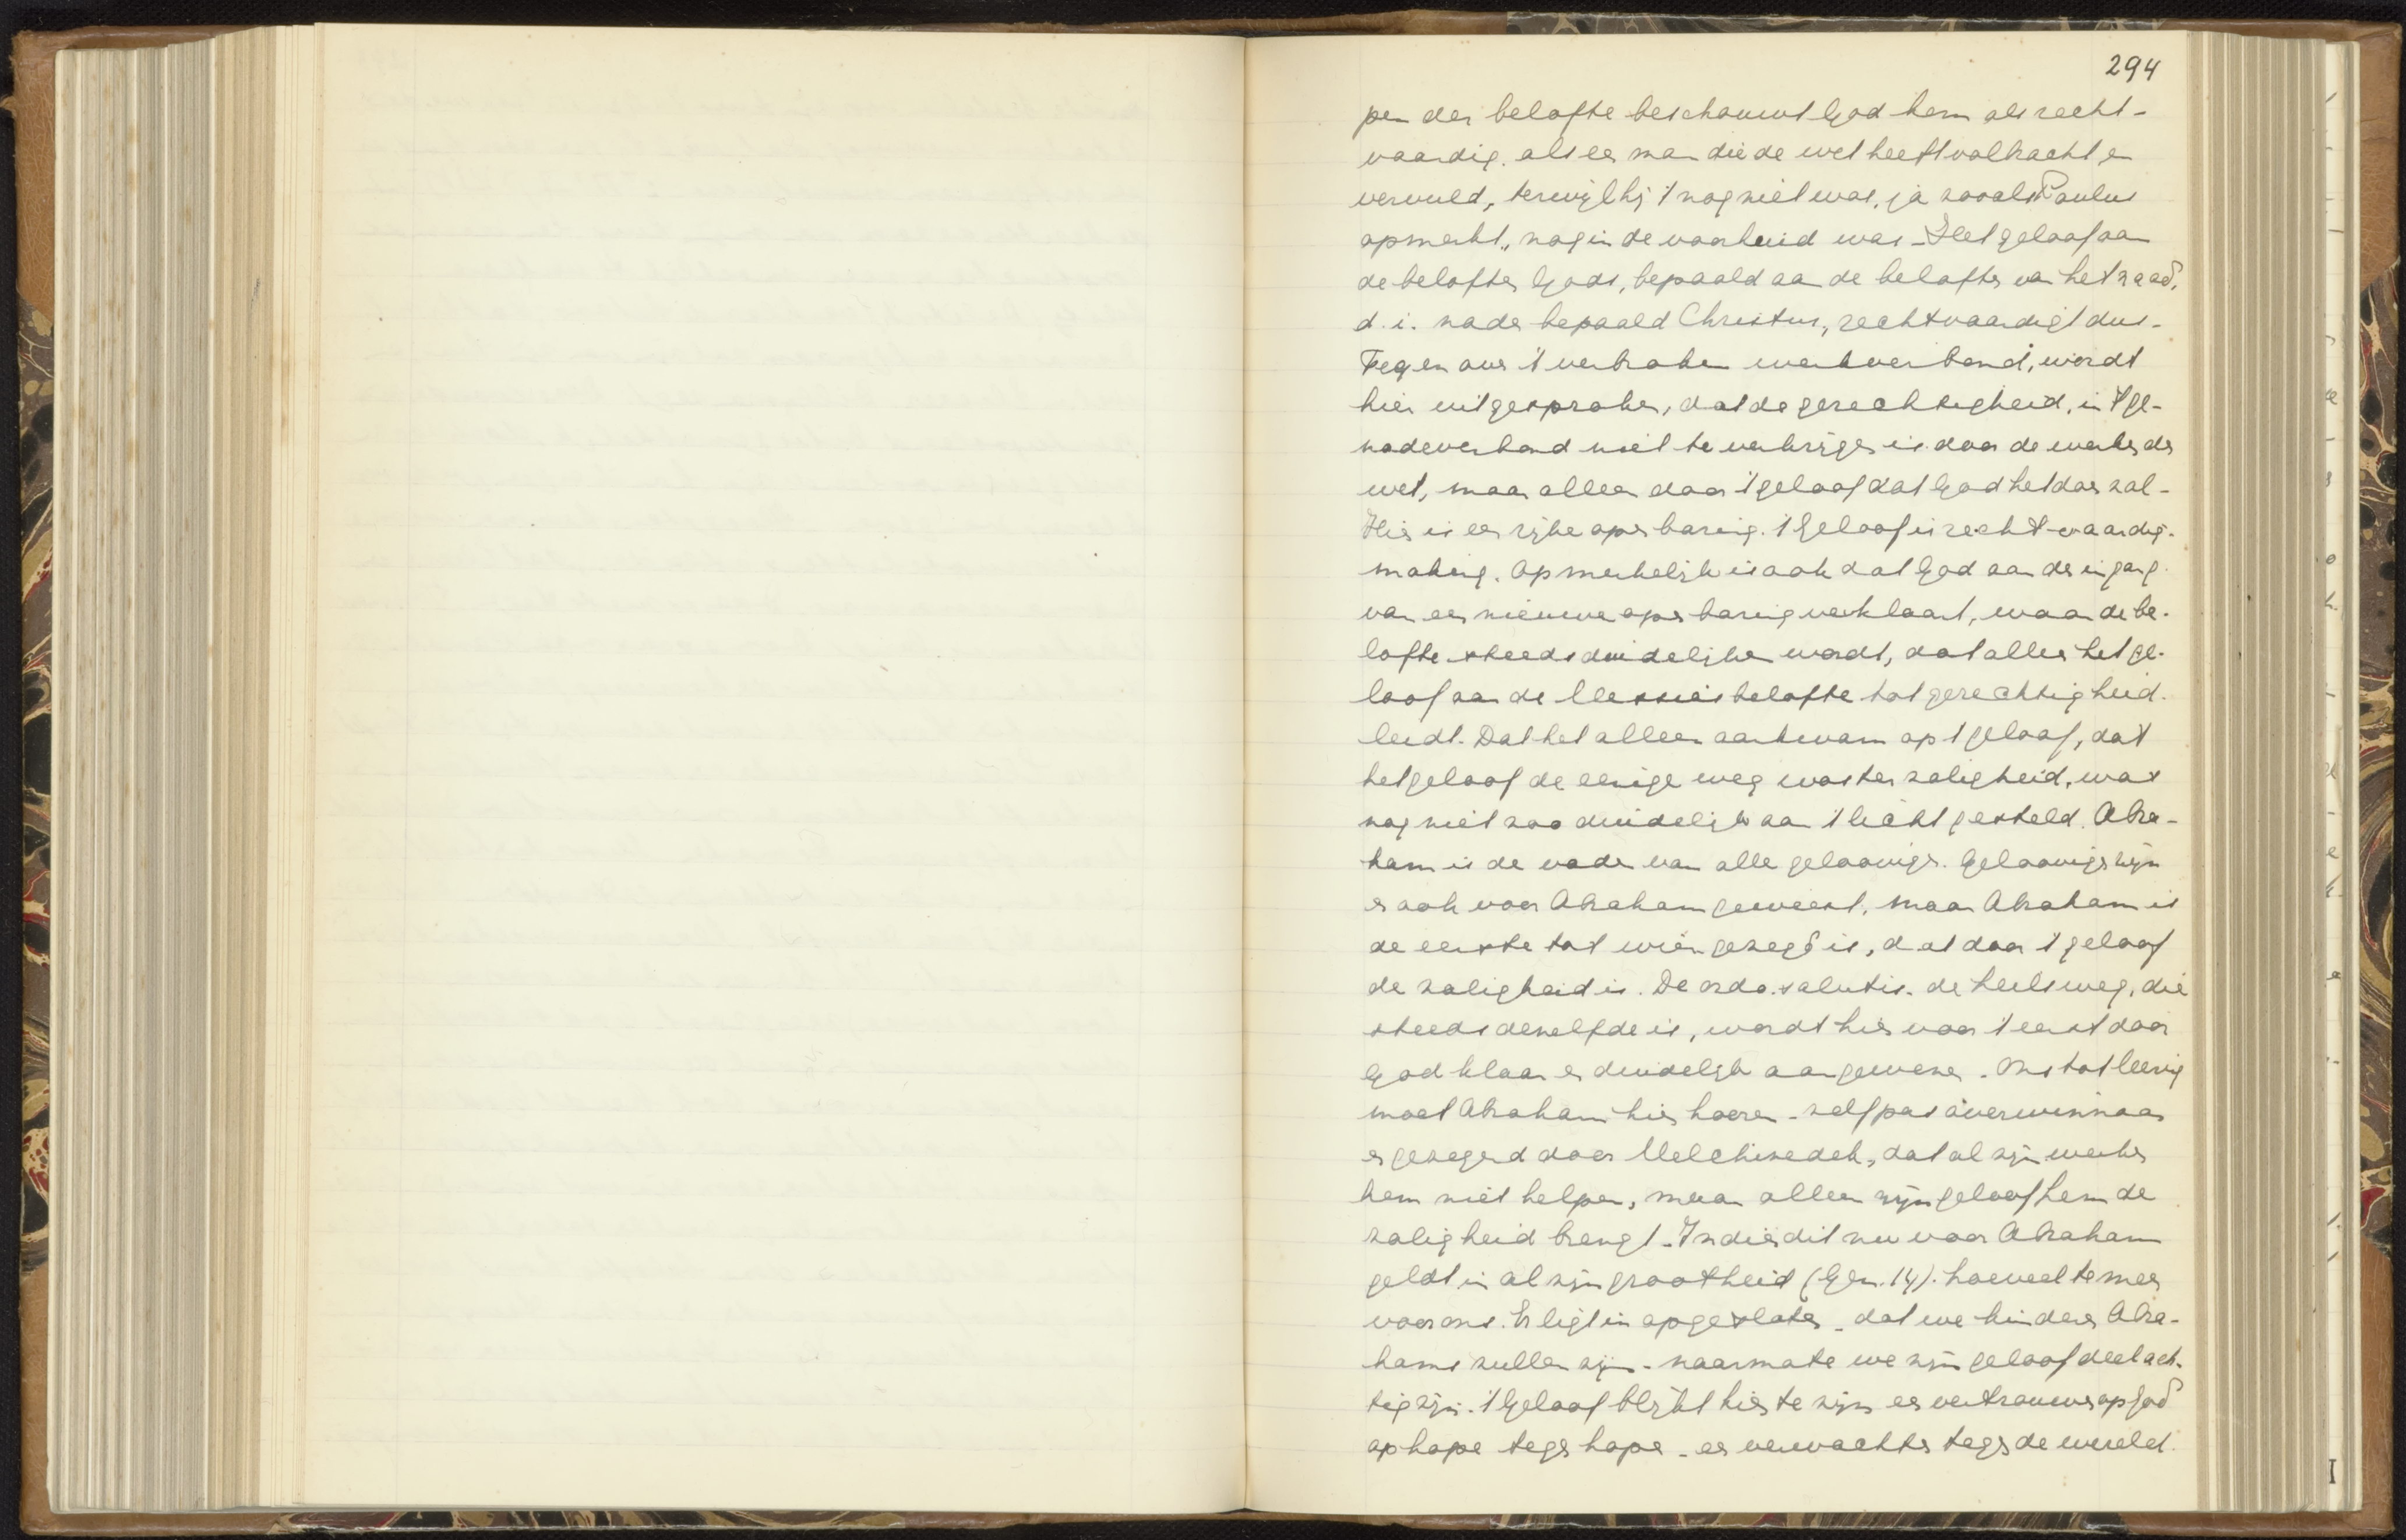 294
pen der belofte beschouwt God hem als recht-
vaardig, als een man die de wet heeft volbracht en
vervuld, terwijl hij 't nog niet was, ja zooals Paulus
opmerkt, nog in de voorhuid was. Het geloof aan
de beloften Gods, bepaald aan de beloften van het zaad,
d.i. nader bepaald Christus, rechtvaardigt dus.
Tegenover 't verbroken werkverbond, wordt
hier uitgesproken, dat de gerechtigheid, in 't ge-
nadeverbond niet te verkrijgen is door de werken der
wet, maar alleen door 't geloof dat God het doen zal.
Hier is een rijke openbaring. 't Geloof is rechtvaardig-
making. Opmerkelijk is ook dat God aan den ingang
van een nieuwe openbaring verklaart, waar de be-
lofte steeds duidelijker wordt, dat alleen het ge-
loof aan de Messiasbelofte tot gerechtigheid
leidt. Dat het alleen aankwam op 't geloof, dat
het geloof de eenige weg was ter zaligheid, was
nog niet zoo duidelijk aan 't licht gesteld. Abra-
ham is de vader van alle geloovigen. Geloovigen zijn
er ook voor Abraham geweest, maar Abraham is
de eerste tot wien gezegd is, dat door 't geloof
de zaligheid is. De ordo salutis, de heilsweg, die
steeds dezelfde is, wordt hier voor 't eerst door
God klaar en duidelijk aangewezen. Ons tot leering
moet Abraham hier hooren - zelf pas overwinnaar
en gezegend door Melchizedek, dat al zijn werken
hem niet helpen, maar alleen zijn geloof hem de
zaligheid brengt. Indien dit nu voor Abraham
geldt in al zijn grootheid (Gen. 14). hoeveel te meer
voor ons. Er ligt in opgesloten - dat we kinderen Abra-
hams zullen zijn - naarmate we zijn geloof deelach-
tig zijn. 't Geloof blijkt hier te zijn een vertrouwen op God
op hope tegen hope - een verwachten tegen de wereld.